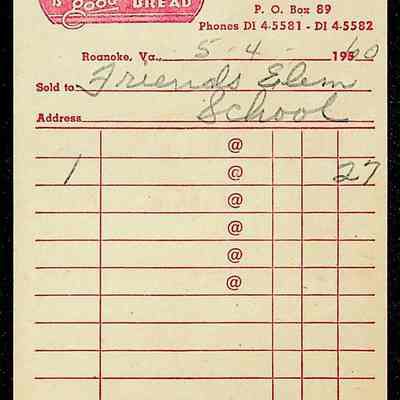 is good BREAD
P. O. Box 89
Phones DI 4-5581 - DI 4-5582
Roanoke, Va., 5 - 4 - 195 60
Sold to Friends Elem
School
Address
@
1 @ 27
@
@
@
@